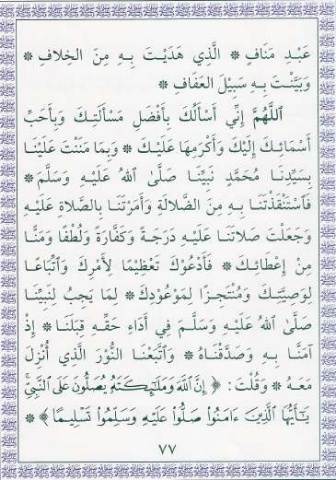 عَبْدِ مَنَافٍ * الَّذِي هَدَيْتَ بِهِ مِنَ الخِلَافِ *
وَبَيَّنْتَ بِهِ سَبِيلَ العَفَافِ *
اللَّهُمَّ إِنِّي أَسْأَلُكَ بِأَفْضَلِ مَسْأَلَتِكَ وَبِأَحَبِّ
أَسْمَائِكَ إِلَيْكَ وَأَكْرَمِهَا عَلَيْكَ * وَبِمَا مَنَنْتَ عَلَيْنَا
بِسَيِّدِنَا مُحَمَّدٍ نَبِيِّنَا صَلَّى اللهُ عَلَيْهِ وَسَلَّمَ *
فَاسْتَنْقَذْتَنَا بِهِ مِنَ الضَّلَالَةِ وَأَمَرْتَنَا بِالصَّلَاةِ عَلَيْهِ
وَجَعَلْتَ صَلَاتَنَا عَلَيْهِ دَرَجَةً وَكَفَّارَةً وَلُطْفًا وَمَنًّا
مِنْ إِعْطَائِكَ * فَأَدْعُوكَ تَعْظِيمًا لِأَمْرِكَ وَاتِّبَاعًا
لِوَصِيَّتِكَ وَمُنْتَجِزًا لِمَوْعُودِكَ * لِمَا يَجِبُ لِنَبِيِّنَا
صَلَّى اللهُ عَلَيْهِ وَسَلَّمَ فِي أَدَاءِ حَقِّهِ قِبَلَنَا * إِذْ
آمَنَّا بِهِ وَصَدَّقْنَاهُ * وَاتَّبَعْنَا النُّورَ الَّذِي أُنْزِلَ
مَعَهُ * وَقُلْتَ: ﴿إِنَّ اللَّهَ وَمَلَٰئِكَتَهُ يُصَلُّونَ عَلَى النَّبِيِّ ۚ
يَٰأَيُّهَا الَّذِينَ ءَامَنُوا صَلُّوا عَلَيْهِ وَسَلِّمُوا تَسْلِيمًا﴾ *
٧٧